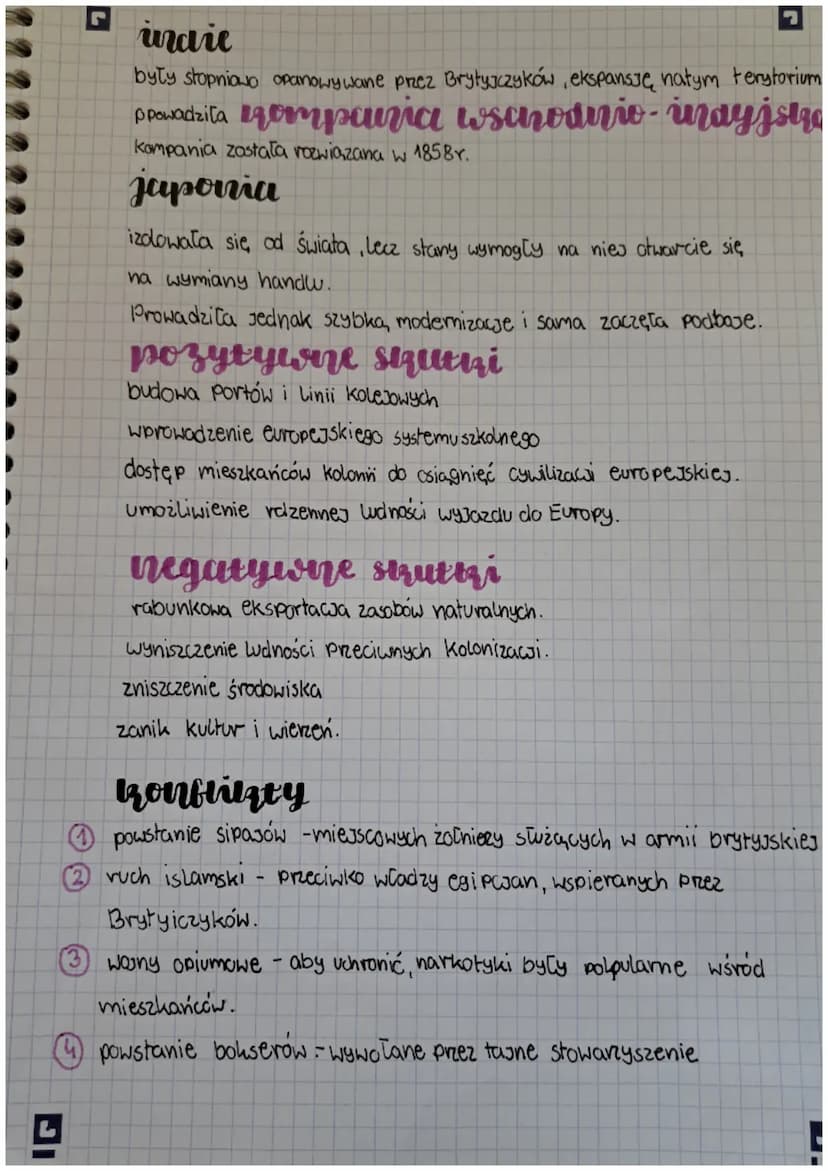 indie
były stopniowo opanowywane przez Brytyjczyków, ekspansję na tym terytorium
ppowadziła kompania wschodnio-indyjska
Kompania została rozwiązana w 1858r.
japonia
izolowała się od świata, lecz stany wymogły na niej otwarcie się
na wymiany handlu.
Prowadziła jednak szybką modernizacje i sama zaczęła podboje.
pozytywne skutki
budowa portów i linii kolejowych
wprowadzenie europejskiego systemu szkolnego
dostęp mieszkańców kolonii do osiągnięć cywilizacji europejskiej.
umożliwienie rdzennej ludności wyjazdu do Europy.
negatywne skutki
rabunkowa eksportacja zasobów naturalnych.
wyniszczenie ludności przeciwnych kolonizacji.
zniszczenie środowiska
zanik kultur i wierzeń.
konflikty
1 powstanie sipajów - miejscowych żołnierzy służących w armii brytyjskiej
2 ruch islamski - przeciwko władzy egipcjan, wspieranych przez
Brytyjczyków.
3 wojny opiumowe - aby uchronić, narkotyki były polpularne wśród
mieszkańców.
4 powstanie bokserów - wywołane przez tajne stowarzyszenie